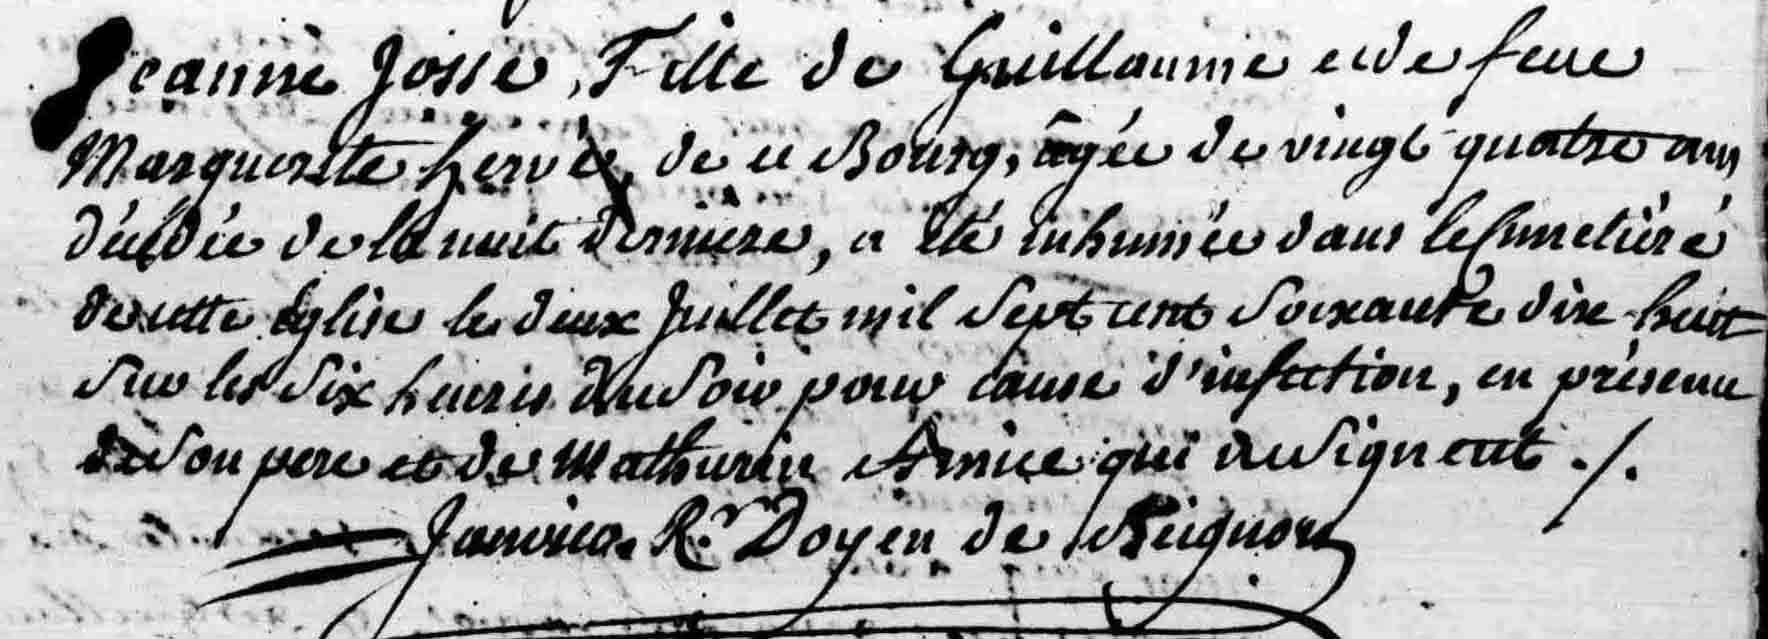 Jeanne Josse, Fille de Guillaume et de feue
Marguerite hervé, de ce Bourg, âgée de vingt quatre ans
décédée de la nuit derniere, a été inhumée dans le Cimetiére
de cette Eglise le deux Juillet mil Sept cent Soixante dix huit
Sur les Six heures du Soir pour cause d'infection, en présence
de Son pere et de Mathurin Amice qui ne Signent ./.
Rr Doyen de Beignon